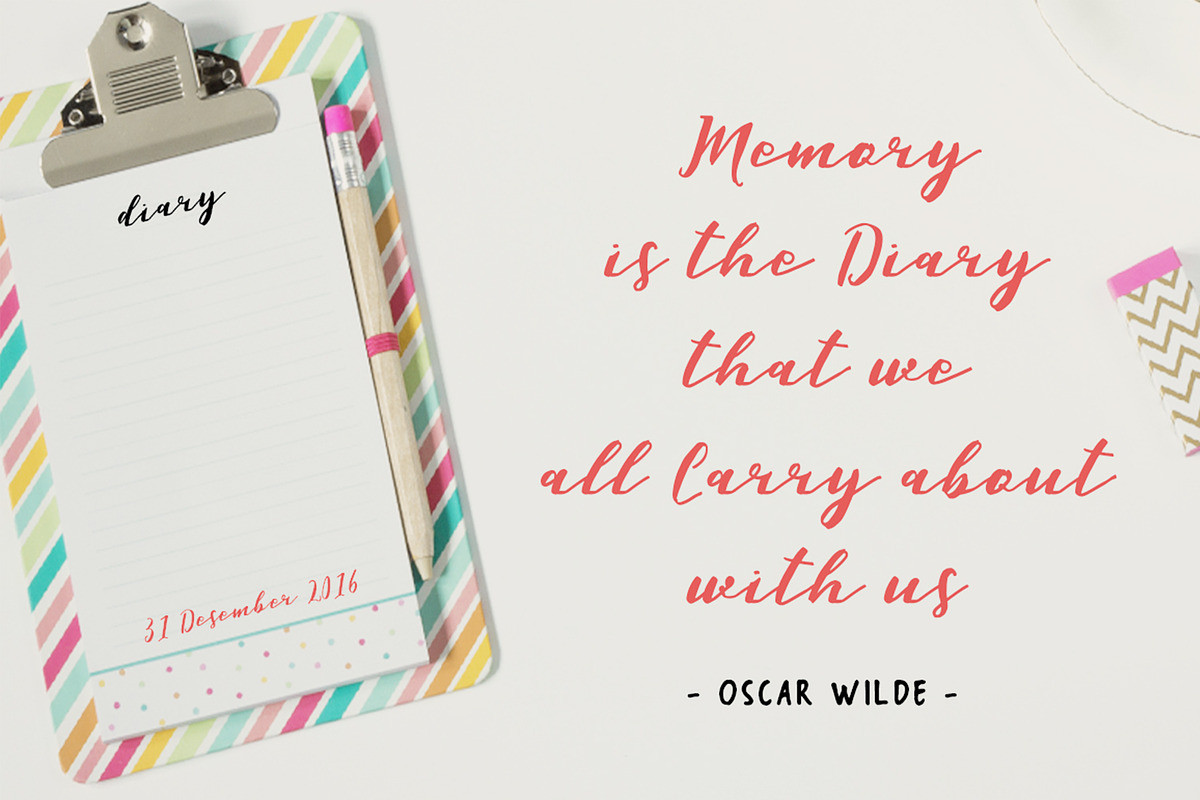 diary
31 Desember 2016
Memory
is the Diary
that we
all Carry about
with us
- OSCAR WILDE -